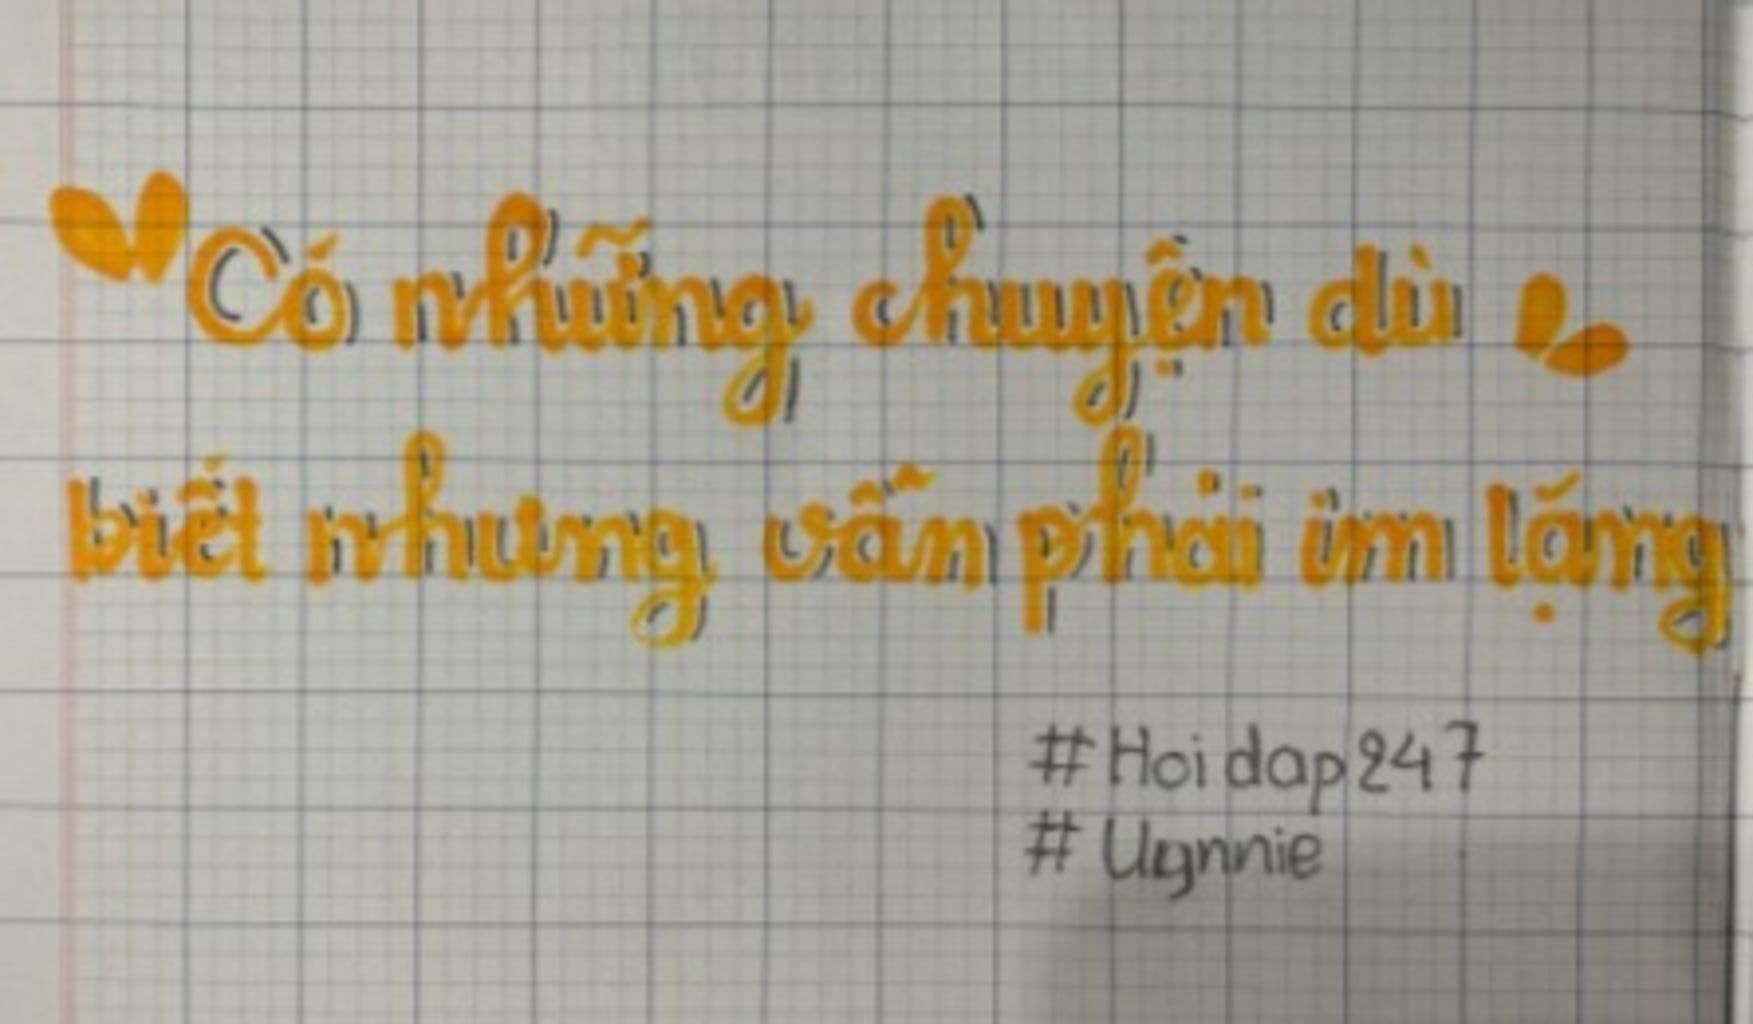 Có những chuyện dù
biết nhưng vẫn phải im lặng
#Hoidap247
#Uynnie